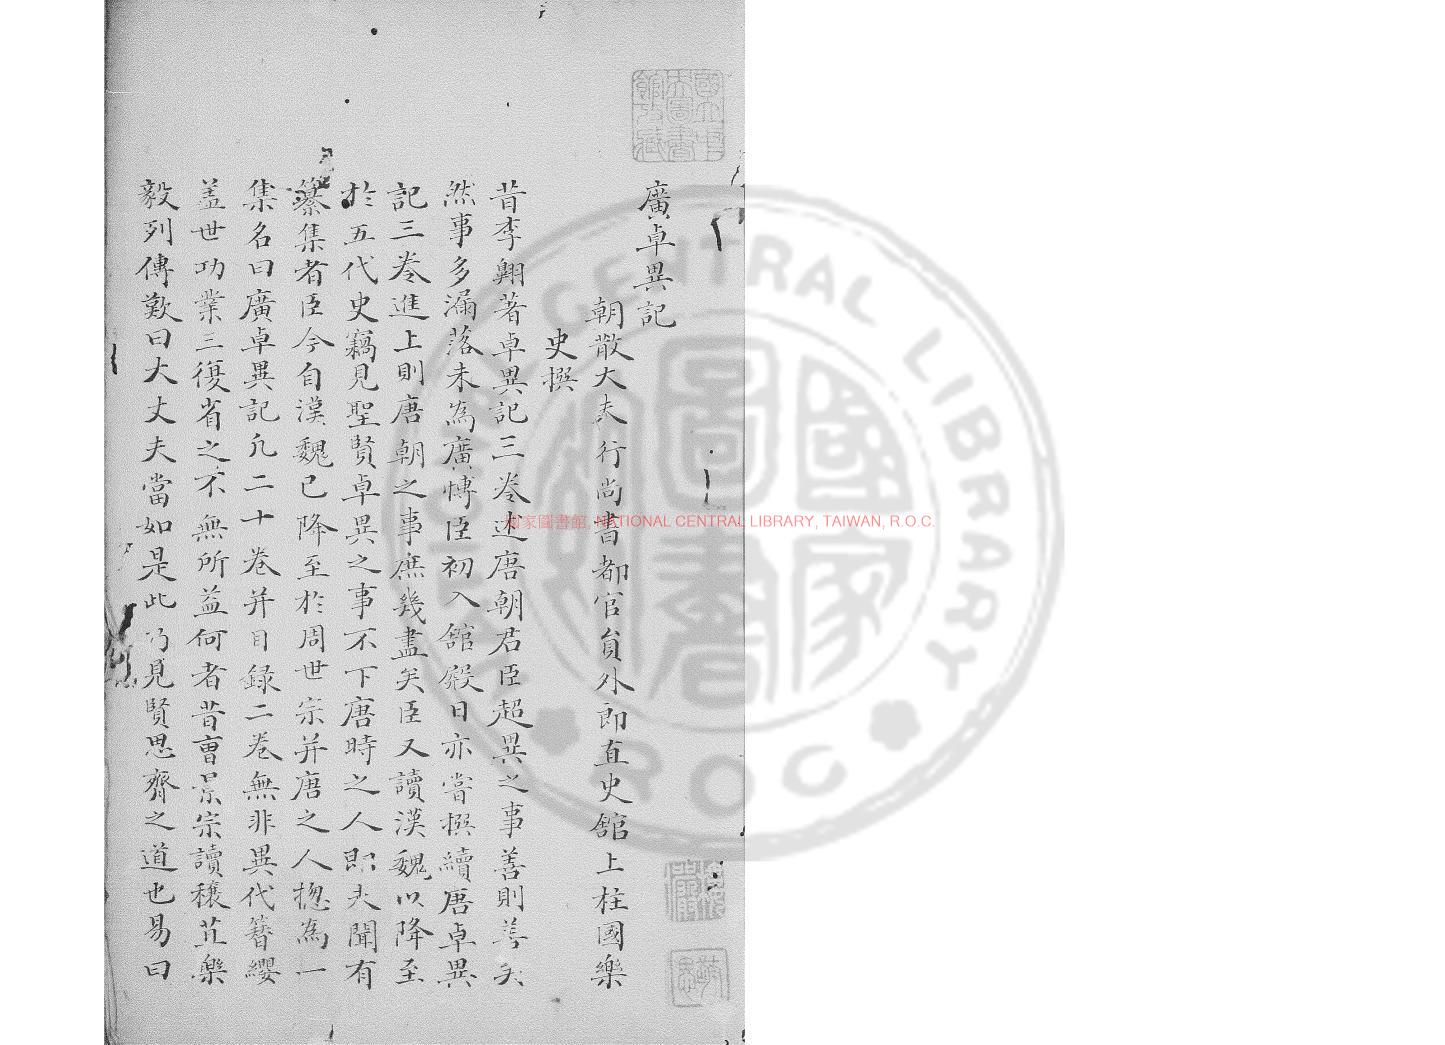 廣卓異記
朝散大夫行尚書都官貟外郎直史館上柱國樂
史撰
昔李翺著卓異記三卷述唐朝君臣超異之事善則善矣
然事多漏落未為廣愽臣初入舘殿日亦甞撰續唐卓異
記三卷進上則唐朝之事庶幾盡矣臣又讀漢魏以降至
於五代史竊見聖賢卓異之事不下唐時之人即未聞有
纂集者臣今自漢魏已降至於周世宗并唐之人揔為一
集名曰廣卓異記凢二十卷并目録二卷無非異代簪纓
盖世功業三復省之不無所益何者昔曺景宗讀穰苴樂
毅列傳歎曰大丈夫當如是此乃見賢思齊之道也易曰
國家圖書館, NATIONAL CENTRAL LIBRARY, TAIWAN, R.O.C.
CENTRAL LIBRARY
R O C
國家圖書
國立中央圖書館收藏